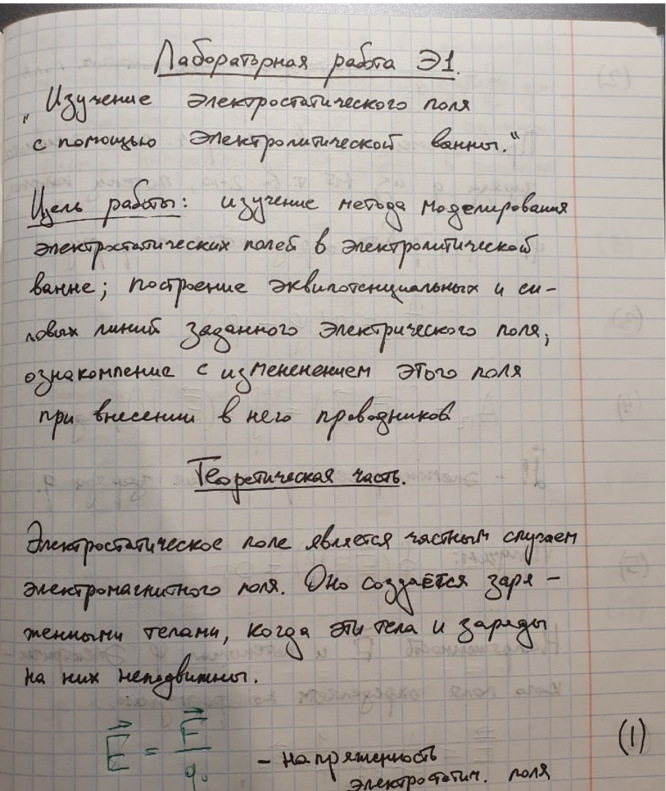 Лабораторная работа Э1.
„Изучение электростатического поля
с помощью электролитической ванны.“
Цель работы: изучение метода моделирования
электростатических полей в электролитической
ванне; построение эквипотенциальных и си-
ловых линий заданного электрического поля;
ознакомление с измененением этого поля
при внесении в него проводников
Теоретическая часть.
Электростатическое поле является частным случаем
электромагнитного поля. Оно создаётся заря-
женными телами, когда эти тела и заряды
на них неподвижны.
E⃗ = F⃗/q₀ - напряженность (1)
электростатич. поля